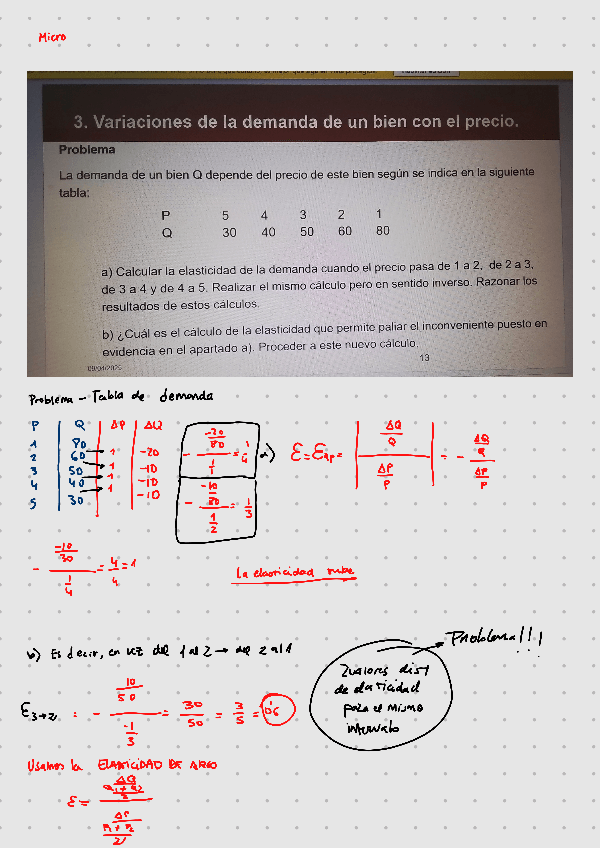 Micro
3. Variaciones de la demanda de un bien con el precio.
Problema
La demanda de un bien Q depende del precio de este bien según se indica en la siguiente
tabla:
P 5 4 3 2 1
Q 30 40 50 60 80
a) Calcular la elasticidad de la demanda cuando el precio pasa de 1 a 2, de 2 a 3,
de 3 a 4 y de 4 a 5. Realizar el mismo cálculo pero en sentido inverso. Razonar los
resultados de estos cálculos.
b) ¿Cuál es el cálculo de la elasticidad que permite paliar el inconveniente puesto en
evidencia en el apartado a). Proceder a este nuevo cálculo.
13
Problema - Tabla de demanda
P Q ΔP ΔQ
1 80
2 60 1 -20
3 50 1 -10
4 40 1 -10
5 30 1 -10
- (-20/80)/(1/1) = 1/4
a) ε = = |(ΔQ/Q)/(ΔP/P)| = - (ΔQ/Q)/(ΔP/P)
= 1/3
= 4/4 = 1
La elasticidad sube
b) Es decir, en vez del 1 al 2 → del 2 al 1
Problema!!!
2 valores dist
de elasticidad
para el mismo
intervalo
ε3→2 = - (10/50)/(-1/3) = 30/50 = 3/5 = 0'6
Usamos la ELASTICIDAD DE ARCO
ε =